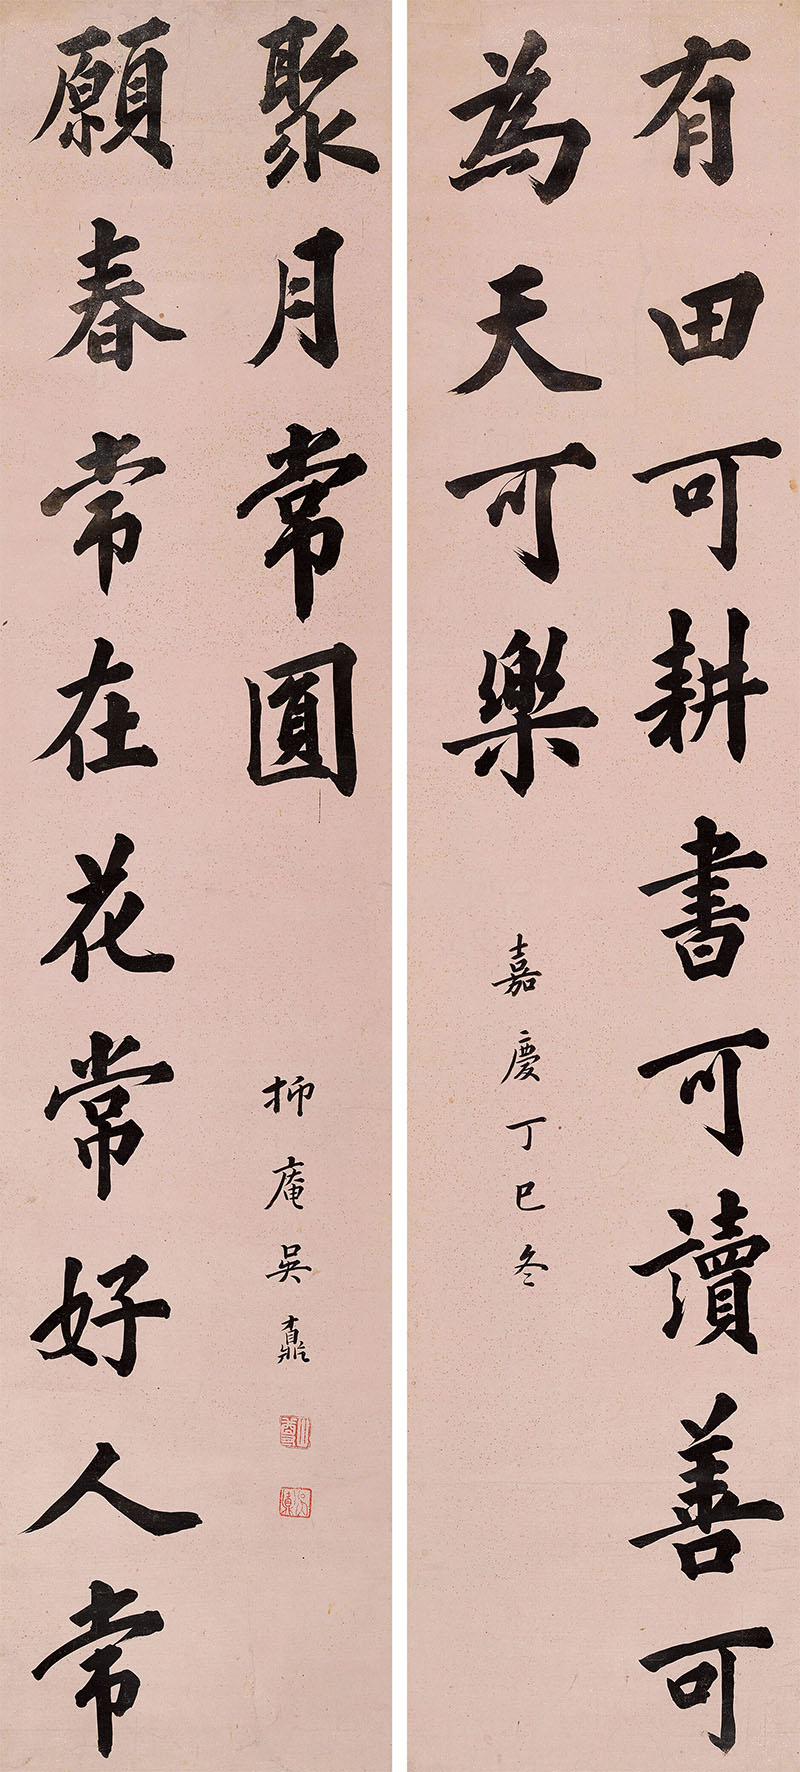 有田可耕書可讀善可
為天可樂
嘉慶丁巳冬
願春常在花常好人常
聚月常圓
抑庵吳鼒
山尊